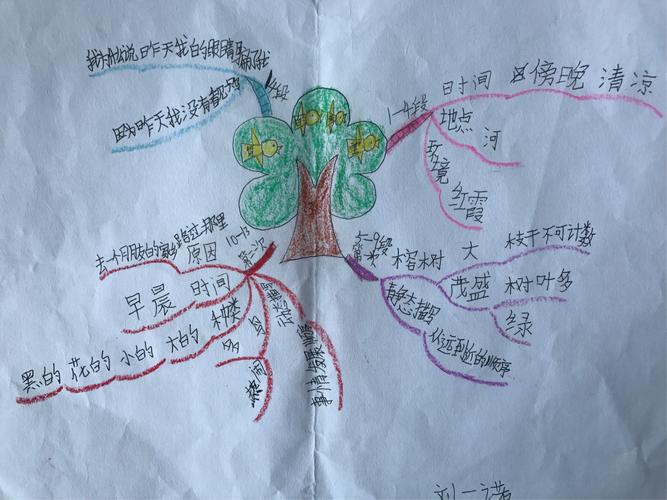 我为什么说昨天我的眼睛骗了我
因为昨天我没有看到
14段
1-4段
时间
傍晚 清凉
地点
河
环境
红霞
5-9段
第一次
榕树
大
枝干不可计数
茂盛
树叶多
绿
静态描写
由远到近的顺序
10-13
第二次
原因
去一个朋友的家路过那里
时间
早晨
样
大的
小的
花的
黑的
多
热闹
动态描写
事情发展顺序
刘一诺